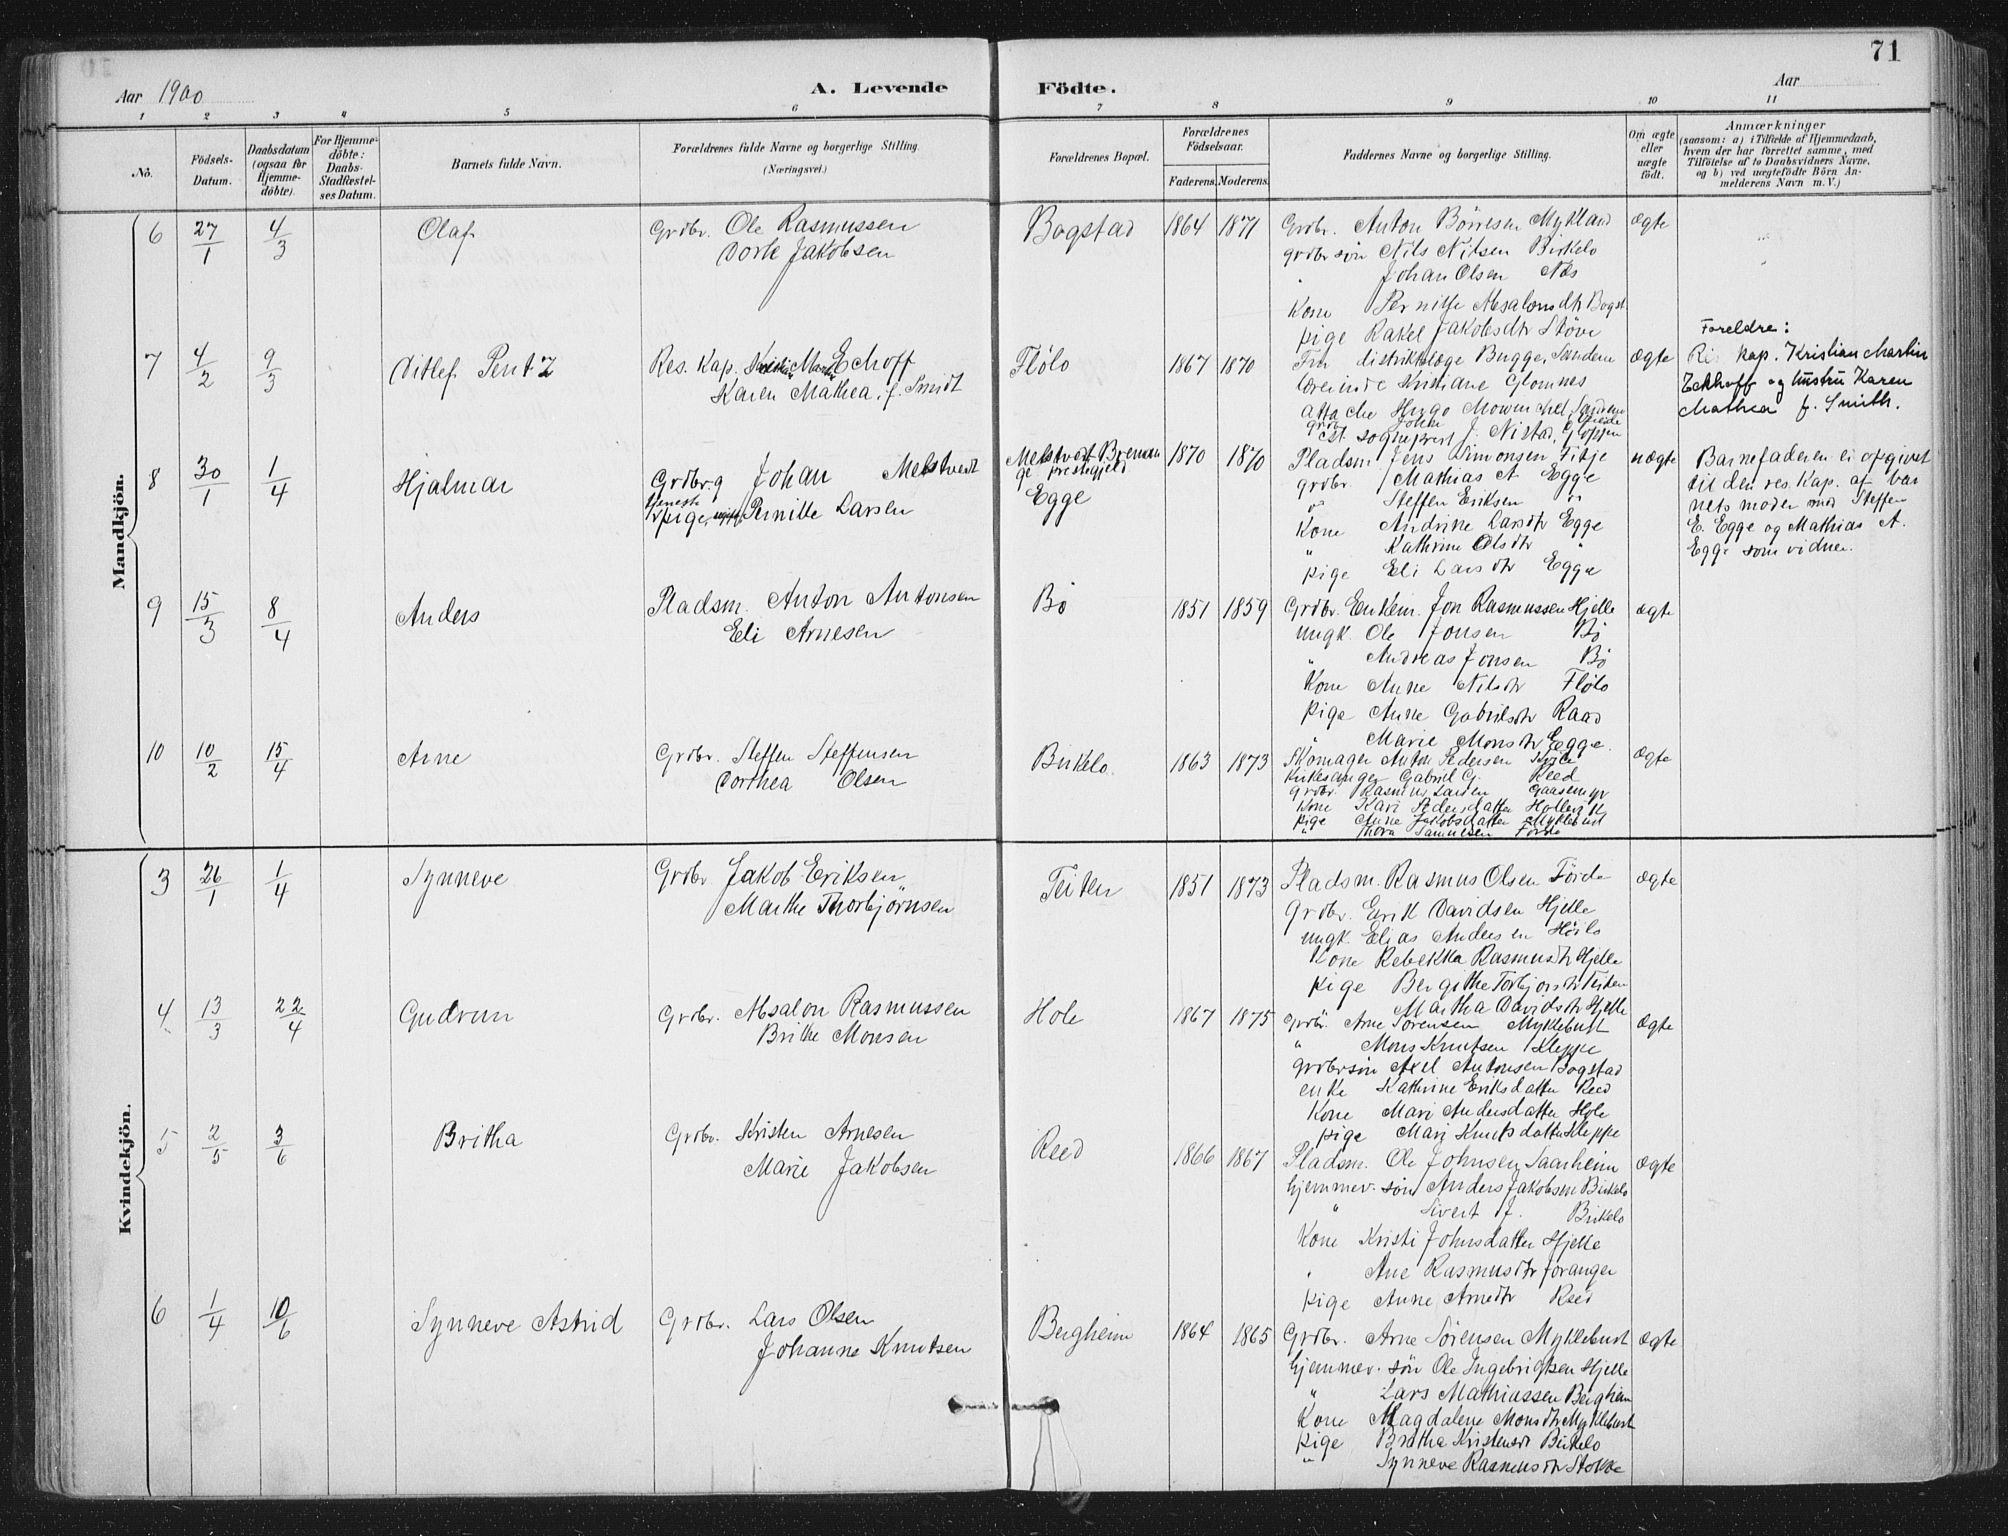 71
Aar 1900
A. Levende
Födte.
Aar
1 2 3 4 5 6 7 8 9 10 11
No.
Födsels-Datum.
Daabsdatum (ogsaa for Hjemmedöbte).
For Hjemmedöbte: Daabs-Stadfæstelses Datum.
Barnets fulde Navn.
Forældrenes fulde Navne og borgerlige Stilling. (Næringsvei.)
Forældrenes Bopæl.
Forældrenes Födselsaar.
Faderens. Moderens.
Faddernes Navne og borgerlige Stilling.
Om ægte eller uægte födt.
Anmærkninger
(saasom: a) i Tilfælde af Hjemmedaab, hvem der har forrettet samme, med Tilföielse af to Daabsvidners Navne, og b) ved uægtefödte Börn Anmelderens Navn m. V.)
Mandkjön.
6 27/1 4/3 Olaf Grdbr. Ole Rasmussen Bogstad 1864 1871 Grdbr. Anton Börresen Mykland ægte
Dorte Jakobsen grdbr søn Nils Nilsen Birkelo
" Johan Olsen Næs
Kone Pernille Absalonsdtr Bogst.
pige Rakel Jakobsdtr Støve
7 4/2 9/3 Ditlef Pentz Res. Kap. Kristian Martin Echoff Flølo 1867 1870 Fru distriktslæge Bugge, Sandene ægte
Karen Mathea, f. Smidt lærerinde Kristiane Glomnes
attache Hugo Mowinckel Sandene
cst. sogneprest J. Nistad, Gloppen
Foreldre:
kap. Kristian Martin
Eckhoff og hustru Karen
Mathea f. Smith.
8 30/1 1/4 Hjalmar Grdbr.g Johan Melstvedt Melstvedt Breman 1870 1870 Pladsm. Jens Simonsen Fitje uægte
ge prestegjeld
tjeneste
pige, ugift Pernille Larsen Egge grdbr Mathias A Egge
" Steffen Eriksen "
Kone Andrine Larsdtr Egge
" Kathrine Olsdtr "
pige Eli Larsdtr Egge
Barnefaderen ei opgivet
til den res. Kap. af bar
nets moder med Steffen
E. Egge og Mathias A.
Egge som vidner.
9 15/3 8/4 Anders Pladsm. Anton Antonsen Bø 1851 1859 Grdbr. Enkem. Jon Rasmussen Hjelle ægte
Eli Arnesen ungk. Ole Jonsen Bø
" Andreas Jonsen Bø
Kone Anne Nilsdtr Flølo
pige Anne Gabrielsdtr Raad
" Marie Monsdtr Egge.
10 10/2 15/4 Arne Grdbr. Steffen Steffensen Birkelo. 1863 1873 Skomager Anton Pedersen ægte
Dorthea Olsen Kirkesanger Gabriel G. Reed
Grdbr. Rasmus Larsen Gaasemyr
Kone Kari Pedersdatter Hollevik
pige Anne Jakobsdatter Myklebust
" Thora Samuelsen Førde
Kvindekjön.
3 26/1 1/4 Synneve Grdbr. Jakob Eriksen Teiten 1851 1873 Pladsm. Rasmus Olsen Førde ægte
Marthe Thorbjörnsen Grdbr. Erik Davidsen Hjelle
ungk. Elias Andersen Høilo
Kone Rebekka Rasmusdtr Hjelle
pige Bergithe Torbjörnsdtr Teiten
" Martha Davidsdtr Hjelle
4 13/3 22/4 Gudrun Grdbr. Absalon Rasmussen Hole 1867 1875 Grdbr. Arne Sørensen Myklebust ægte
Brithe Monsen " Mons Knutsen Kleppe
grdbrsøn Axel Antonsen Bogstad
enke Kathrine Eriksdatter Reed
Kone Mari Andersdatter Hole
pige Mari Knutsdatter Kleppe
5 2/5 3/6 Britha Grdbr. Kristen Arnesen Reed 1866 1867 Pladsm. Ole Johnsen Saarheim ægte
Marie Jakobsen hjemmev. søn Anders Jakobsen Birkelo
" Sivert J. Birkelo
Kone Kristi Johnsdatter Hjelle
" Ane Rasmusdtr Foranger
pige Anne Arnedtr Reed
6 1/4 10/6 Synneve Astrid Grdbr. Lars Olsen Bergheim 1864 1865 Grdbr. Arne Sørensen Myklebust ægte
Johanne Knutsen hjemmev. søn Ole Ingebrigtsen Hjelle
" Lars Mathiassen Bergheim
Kone Magdalene Monsdtr Myklebust
pige Britha Kristensdtr Birkelo
" Synneve Rasmusdtr Stokke